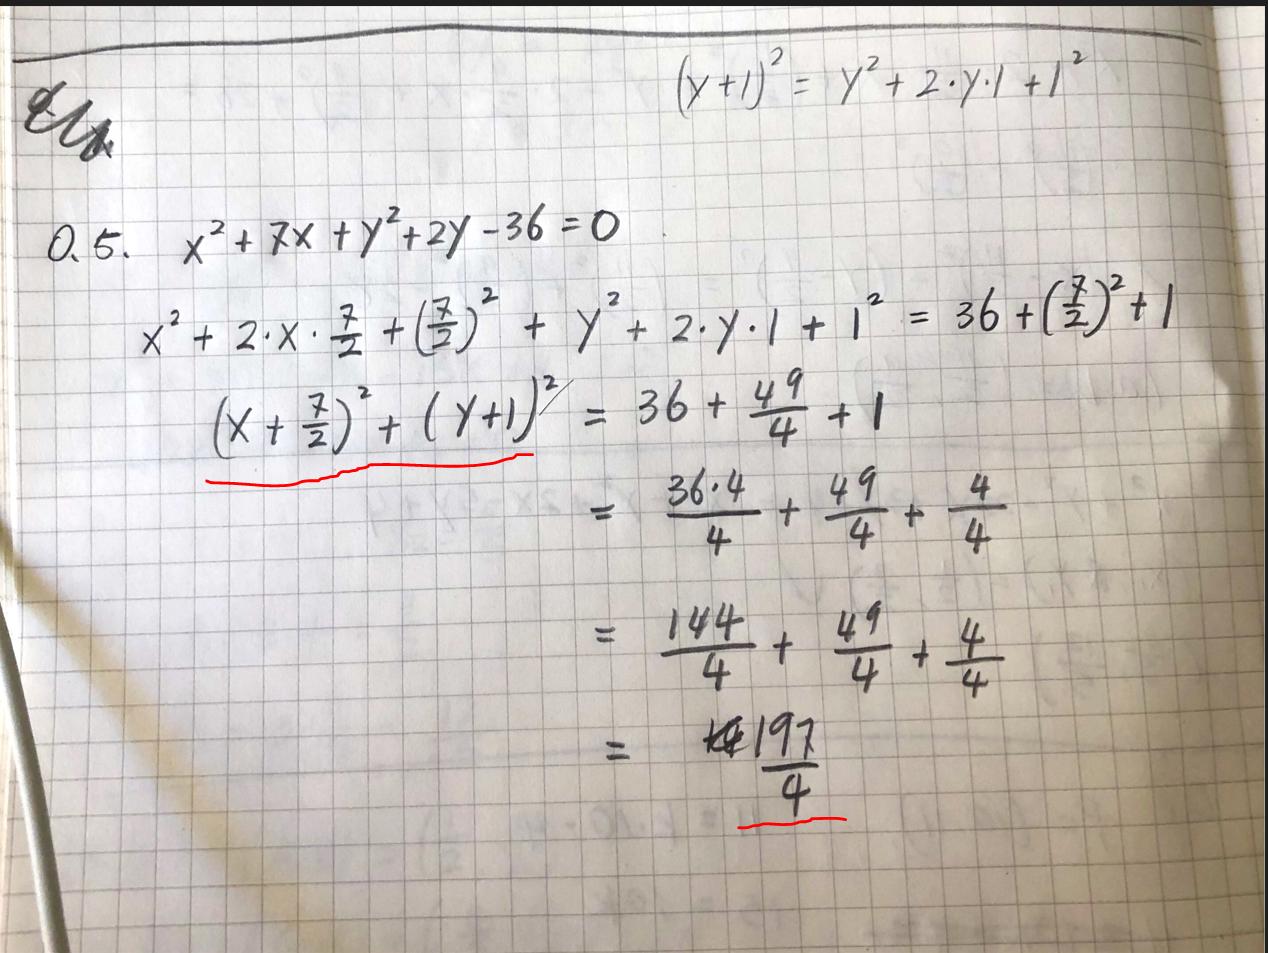 (y+1)² = y² + 2·y·1 + 1²
0.5. x² + 7x + y² + 2y - 36 = 0
x² + 2·x·7/2 + (7/2)² + y² + 2·y·1 + 1² = 36 + (7/2)² + 1
(x + 7/2)² + (y+1)² = 36 + 49/4 + 1
= 36·4/4 + 49/4 + 4/4
= 144/4 + 49/4 + 4/4
= 197/4